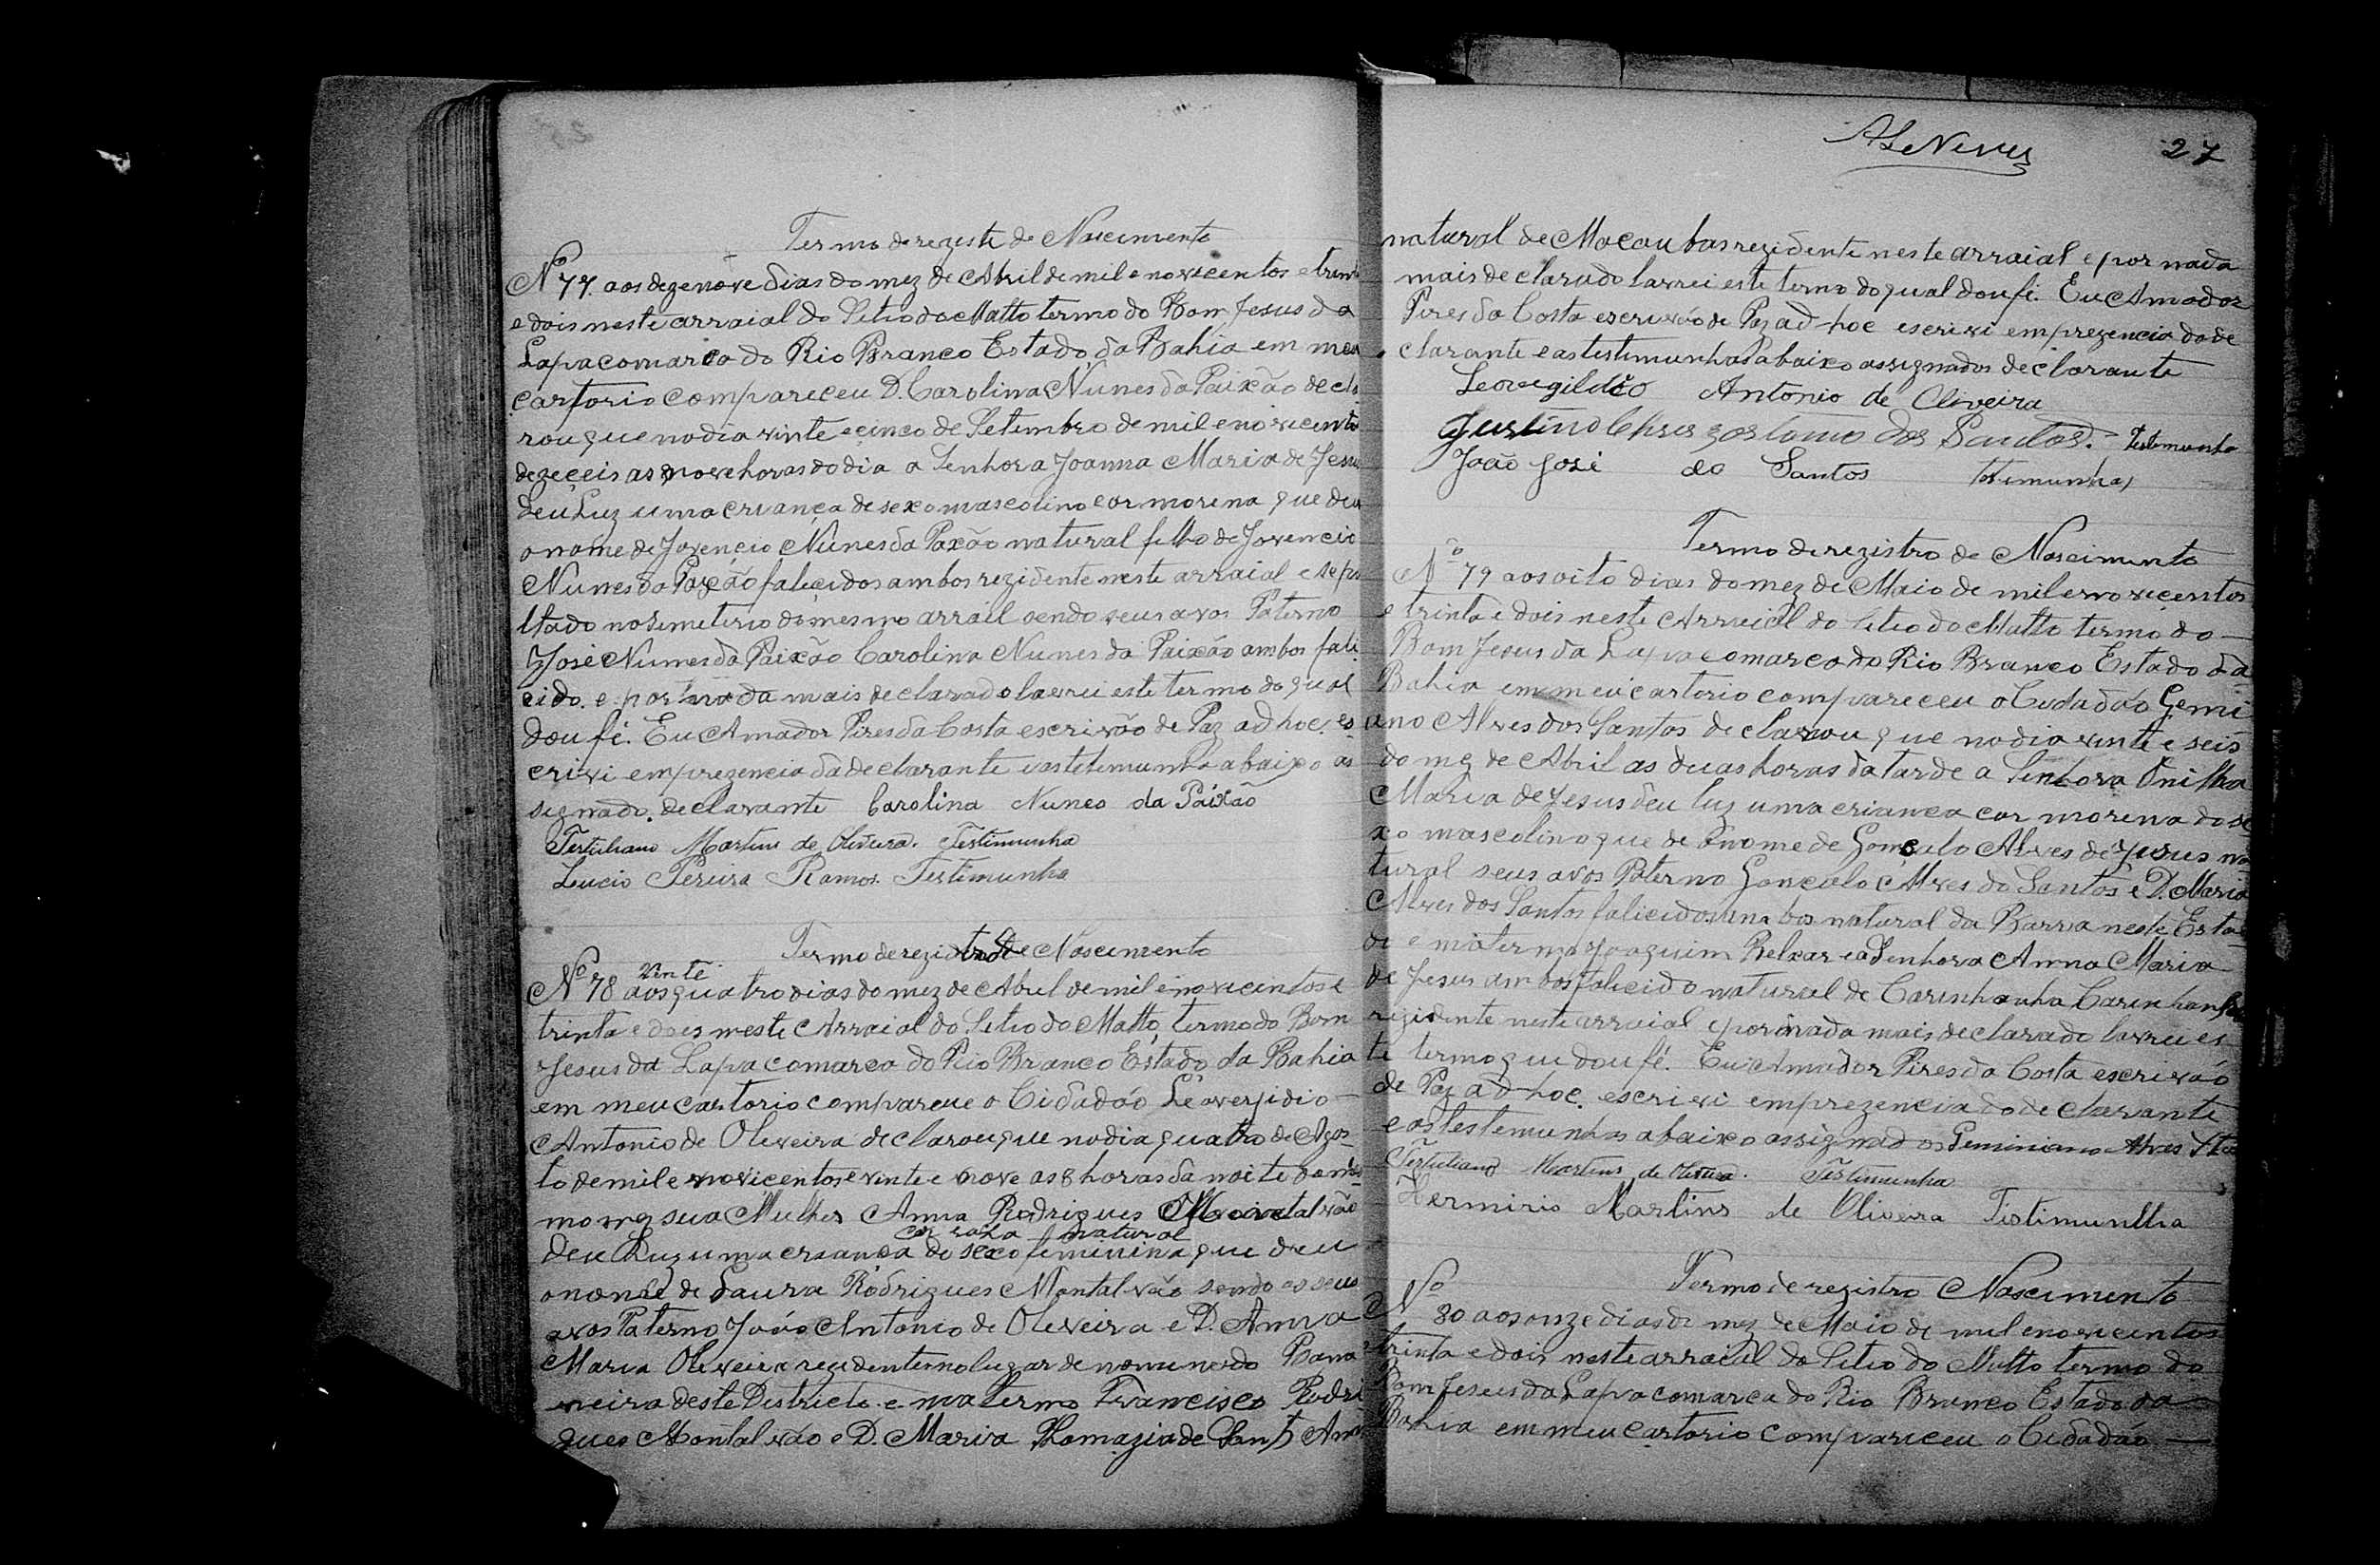 Termo de regeste de Nascimento
Nº 77. aos dezenove dias do mez de Abril de mil e novecentos e trint
e dois neste arraial do Sitio do Matto termo do Bom Jesus da
Lapa comarca do Rio Branco Estado da Bahia em meu
cartorio compareceu D. Carolina Nunes da Paixão decla
rou que no dia vinte e cinco de Setembro de mil e novicento
dezeceis as nove horas do dia a Senhora Joanna Maria de Jesus
deu Luz uma criança de sexo mascolino cor morena que deu
o nome de Jovencio Nunes da Paxão natural filho de Jovencio
Nunes da Paxão falicidos ambos rezidente neste arraial e sepu
ltado no Semeterio do mesmo arrail sendo seus avos Paterno
José Nunes da Paixão Carolina Nunes da Paixão ambos fali
cido. e por nada mais declarado lavrei este termo do qual
dou fé. Eu Amador Pires da Costa escrivão de Paz ad hoc. es
crivi em prezencia da declarante e as tetemunha abaixo as
signado. declarante Carolina Nunes da Paixão
Tertuliano Martins de Oliveira. Testimunha
Lucio Pereira Ramos. Testimunha
Termo de rezistro de Nascimento
vinte
Nº 78 aos quatro dias do mez de Abril de mil e novicentos e
trinta e dois neste Arraial do Sitio do Matto, termo do Bom
Jesus da Lapa comarca do Rio Branco Estado da Bahia
em meu cartorio compareue o Cidadão Leoverjidio
Antonio de Oliveira declarou que no dia quatro de Agos
to de mil e novicentos e vinte e nove as 8 horas da noite do mes
mo mez sua Mulher Anna Rodrigues Montalvão
cor natural
deu Luz uma creança do sexo feminina que deu
o nome de Laura Rodrigues Montalvão sendo os seus
avos Paterno João Antonio de Oliveira e D. Anna
Maria Oliveira rezidente no lugar denominado Bana
neira deste Districto e materno Francisco Rodri
gues Montalvão e D. Maria Thomazia de Sant Anna
ALeNeves 27
natural de Macaubas rezidente neste arraial e por nada
mais declarado lavrei este termo do qual dou fé. Eu Amador
Pires da Costa escrivão de Paz ad-hoc escrivi em prezencia do de
clarante e as testimunhas abaixo assignados declarante
Leovegildo Antonio de Oliveira
Justino Chrisostomo dos Santos. Testemunha
João José do Santos
Termo de registro de Nascimento
Nº 79 aos oito dias do mez de Maio de mil e novecentos
e trinta e dois neste Arraial do Sitio do Matto termo do
Bom Jesus da Lapa comarca do Rio Branco Estado da
Bahia em meu cartorio compareceu o Cidadão Gemi
ano Alves dos Santos declarou que no dia vinte e seis
do mez de Abril as duas horas da tarde a Senhora Onilha
Maria de Jesus deu luz uma crianca cor morena do se
xo mascolino que de o nome de Gonçalo Alves de Jesus na
tural seus avos Paterno Gonçalo Alves do Santos e D. Maria
Alves dos Santos falicidos ambos natural da Barra neste Esta
do e materno Joaquim Belxar e a Senhora Anna Maria
de Jesus ambos falicido natural de Carinhanha Carinhanha
rezidente neste arraial e por nada mais declarado lavrei es
te termo que dou fé. Eu Amador Pires da Costa escrivão
de Paz ad-hoc. escrivi em prezencia do declarante
e as testemunhas abaixo assignados Geminiano Alves
Tertuliano Martins de Oliveira. Testimunha
Hermirio Martins de Oliveira Tistimunhha
Termo de registro Nascimento
Nº 80 aos onze dias do mez de Maio de mil e novicentos
trinta e dois neste arraial do Sitio do Matto termo do
Bom Jesus da Lapa comarca do Rio Branco Estado da
Bahia em meu cartorio compariceu o Cidadão